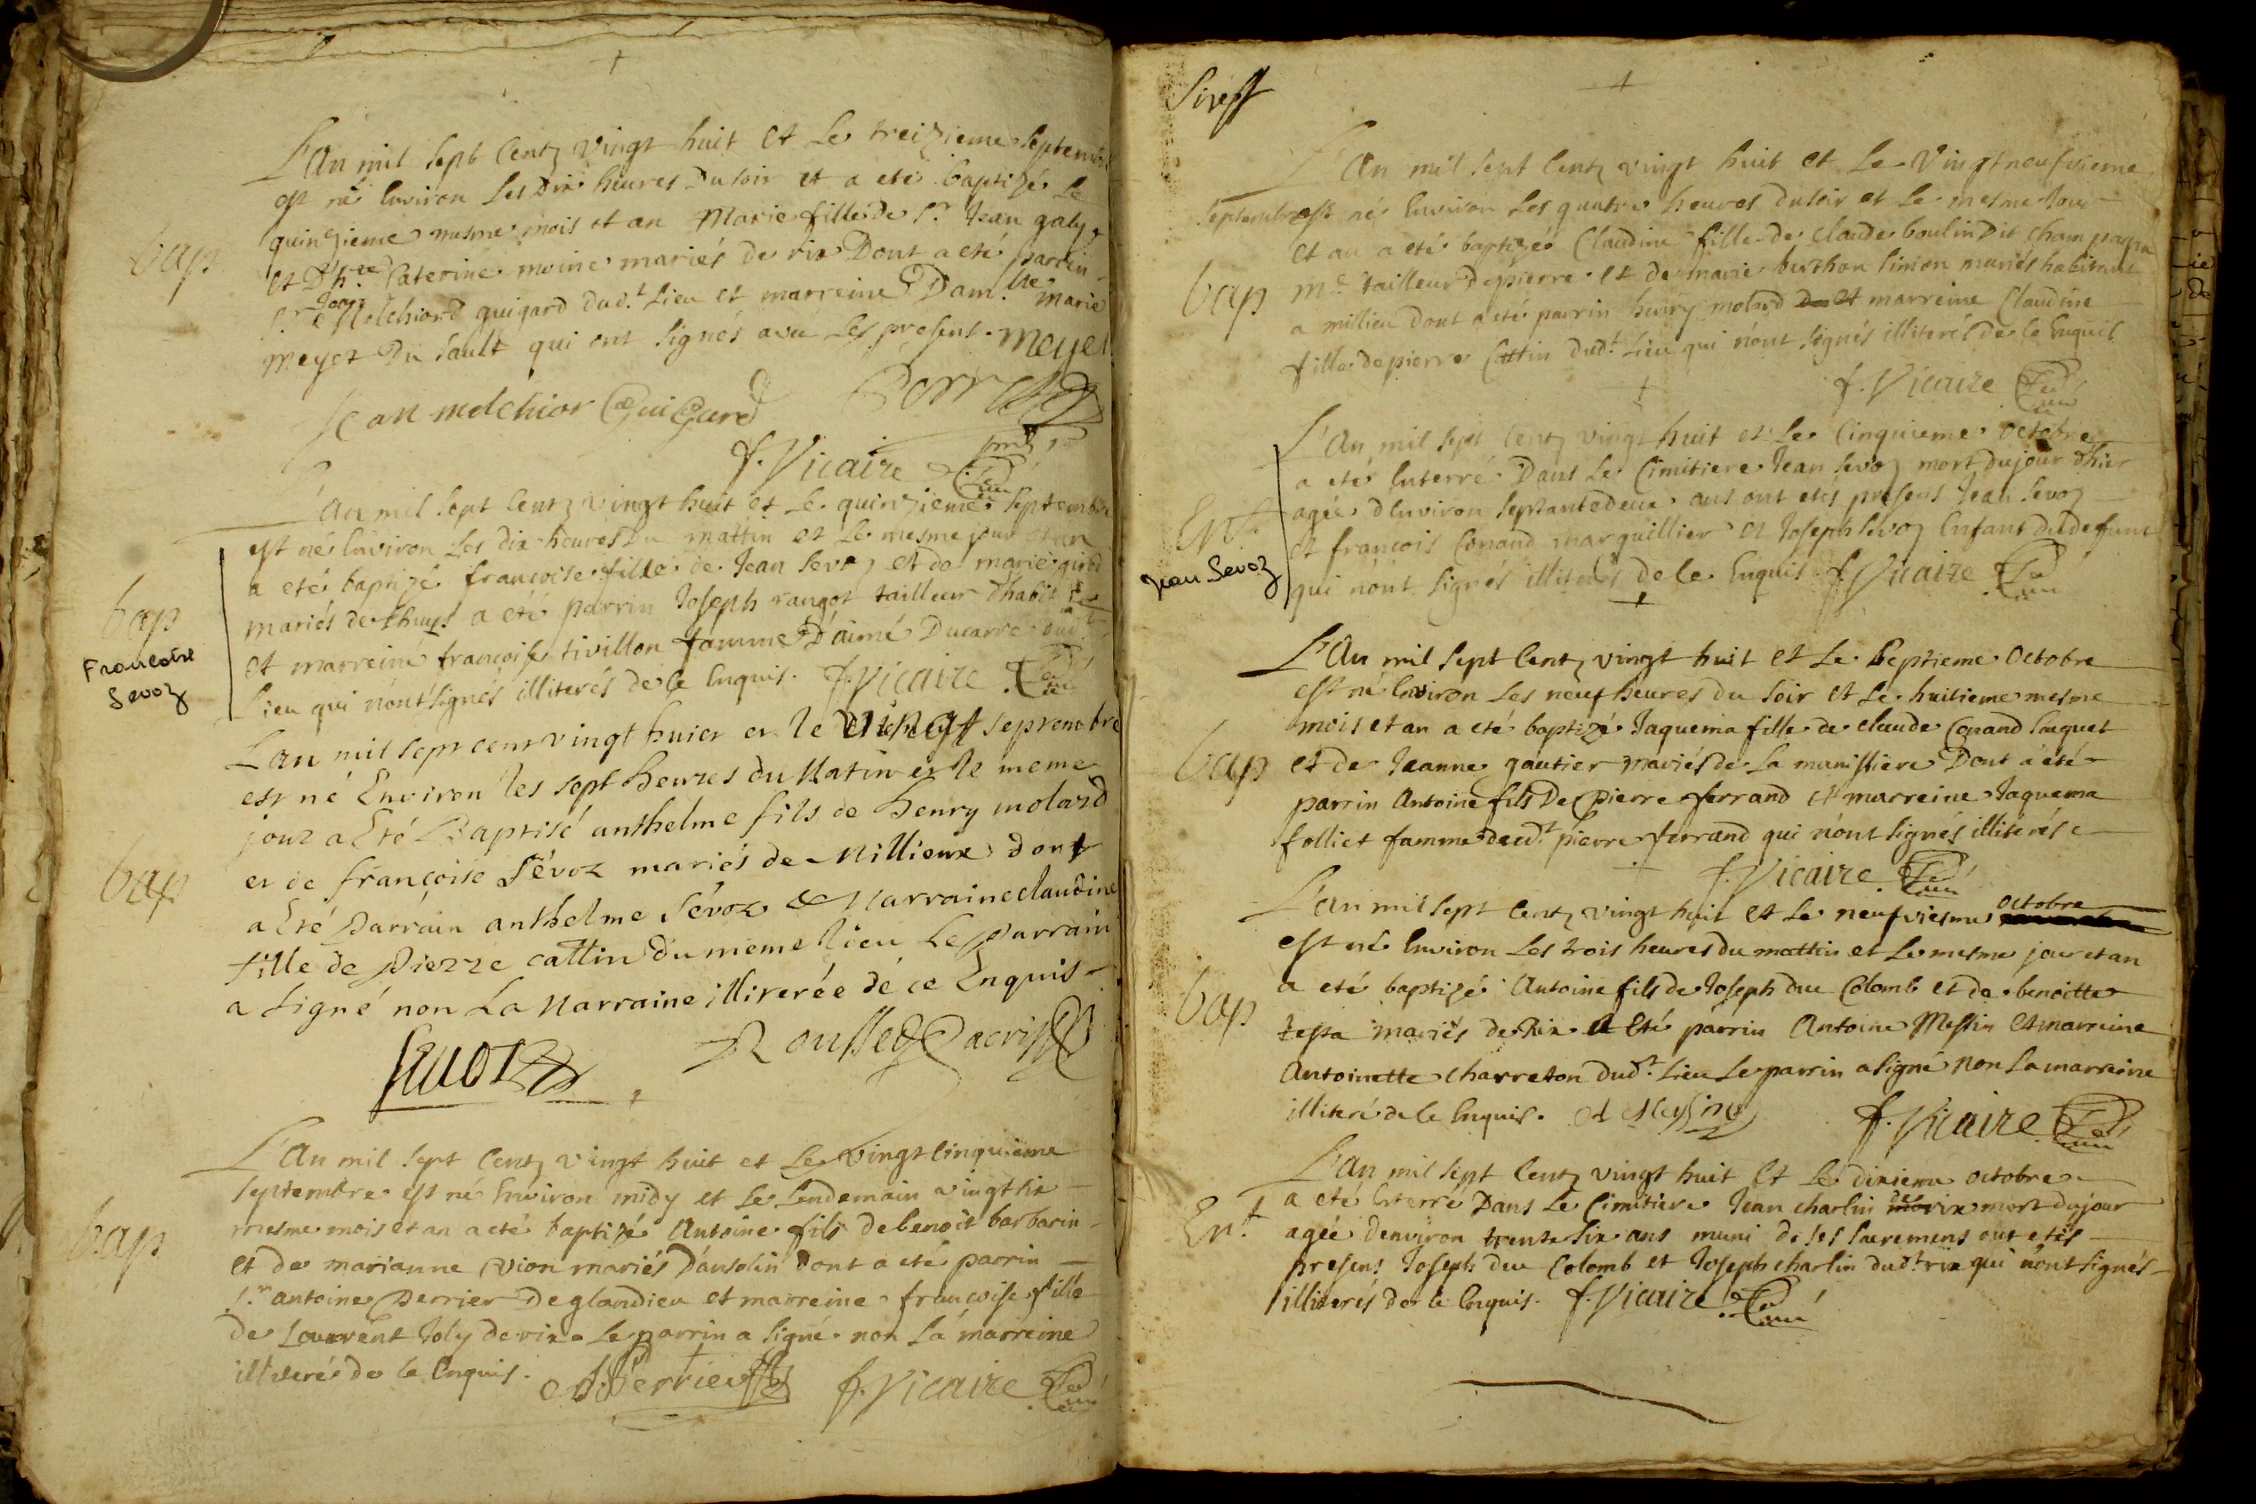 L'An mil sept Centz vingt huit et Le treizieme Septembre
est né Environ Les Dix heures Du soir et a eté baptizé Le
quinzieme mesme mois et an Marie fille de Sr. Jean galy
bap
et Dh.lle Caterine moine mariés de rix Dont a eté parrin
Sr. Jean Melchiord guigard dud.t Lieu et marreine Dam.lle marie
meyet Du Sault qui ont signés avec Les present. meyet
Jean melchior Guigard
f. Vicaire
L'An mil sept Centz vingt huit et Le quinzieme Septembre
est né Environ Les dix heures Du mattin et Le mesme jour et an
a eté baptizé francoise fille de Jean Sevoz et de marie
bap
mariés de thuys a eté parrin Joseph rangot tailleur Dhabit
et marreine francoise tivillon famme D'aimé Ducarre dud.t
Francoise
Sevoz
Lieu qui n'ont signés illiterés de Ce Enquis. f. Vicaire
L'an mil sept cent vingt huict et le vingt septembre
est né Environ les sept heures du Matin et le meme
jour a Eté Baptisé anthelme fils de henry molard
bap
et de françoise Sévoz mariés de Millieux dont
a Eté Parrain anthelme Sévoz & Marraine claudine
fille de Pierre cattin du meme lieu Le Parrain
a Signé non La Marraine illiterée de ce Enquis
Sevoz
Rousset Sacrist
L'An mil sept Centz vingt huit et Le vingt cinquieme
Septembre est né Environ midy et Le Lendemain vingt six
mesme mois et an a eté baptizé Antoine fils de benoit barbarin
bap
et de marianne vion mariés D'ansolin Dont a eté parrin
Sr. antoine Perrier De glandieu et marreine francoise fille
de Laurent Joly de rix Le parrin a signé non La marreine
illiteré de Ce Enquis.
Perrier
f. Vicaire
L'An mil sept Centz vingt huit et Le Vingt neufvieme
Septembre est né Environ Les quatre heures du soir et Le mesme Jour
et an a eté baptizée Claudine fille de claude boulin Dit champagne
bap
me. tailleur de pierre et de marie burthon Simon mariés habitant
a millieu Dont a eté parrin henry molard et marreine Claudine
fille de pierre Cattin dud.t Lieu qui n'ont signés illiterés de Ce Enquis
f. Vicaire
L'An mil sept Centz vingt huit et Le Cinquieme Octobre
a eté Enterré Dans Le Cimitiere Jean Sevoz mort du jour d'hier
Ent.
agée d'Environ septante deux ans ont etés presens Jean Sevoz
et francois Conand marguillier et Joseph Sevoz Enfant dud defunt
Jean Sevoz
qui n'ont signés illiterés de Ce Enquis f. Vicaire
L'An mil sept Centz vingt huit et Le Septieme Octobre
est né Environ Les neuf heures du soir et Le huitieme mesme
mois et an a eté baptizé Jaquema fille de claude Conand
bap
et de Jeanne gautier mariés de La manissiere Dont a eté
parrin Antoine fils De Pierre ferrand et marreine Jaquema
folliet famme dud.t pierre ferrand qui n'ont signés illiterés
f. Vicaire
L'An mil sept Centz vingt huit et Le neufviesme octobre
est né Environ Les trois heures du mattin et Le mesme jour et an
a eté baptizé Antoine fils de Joseph due Colomb et de benoitte
bap
tessa mariés de Rix a Eté parrin Antoine Messin et marreine
Antoinette charreton dud.t Lieu Le parrin a signé non La marreine
illiteré de Ce Enquis. A Messin f. Vicaire
L'An mil sept Centz vingt huit Et Le dixieme octobre
a eté Enterré Dans Le Cimitiere Jean charlin de rix mort du jour
En.t
agée d'environ trente six ans muni de ses sacremens ont etés
presens Joseph due Colomb et Joseph charlin dud.t rix qui n'ont signés
illiterés de Ce Enquis. f. Vicaire